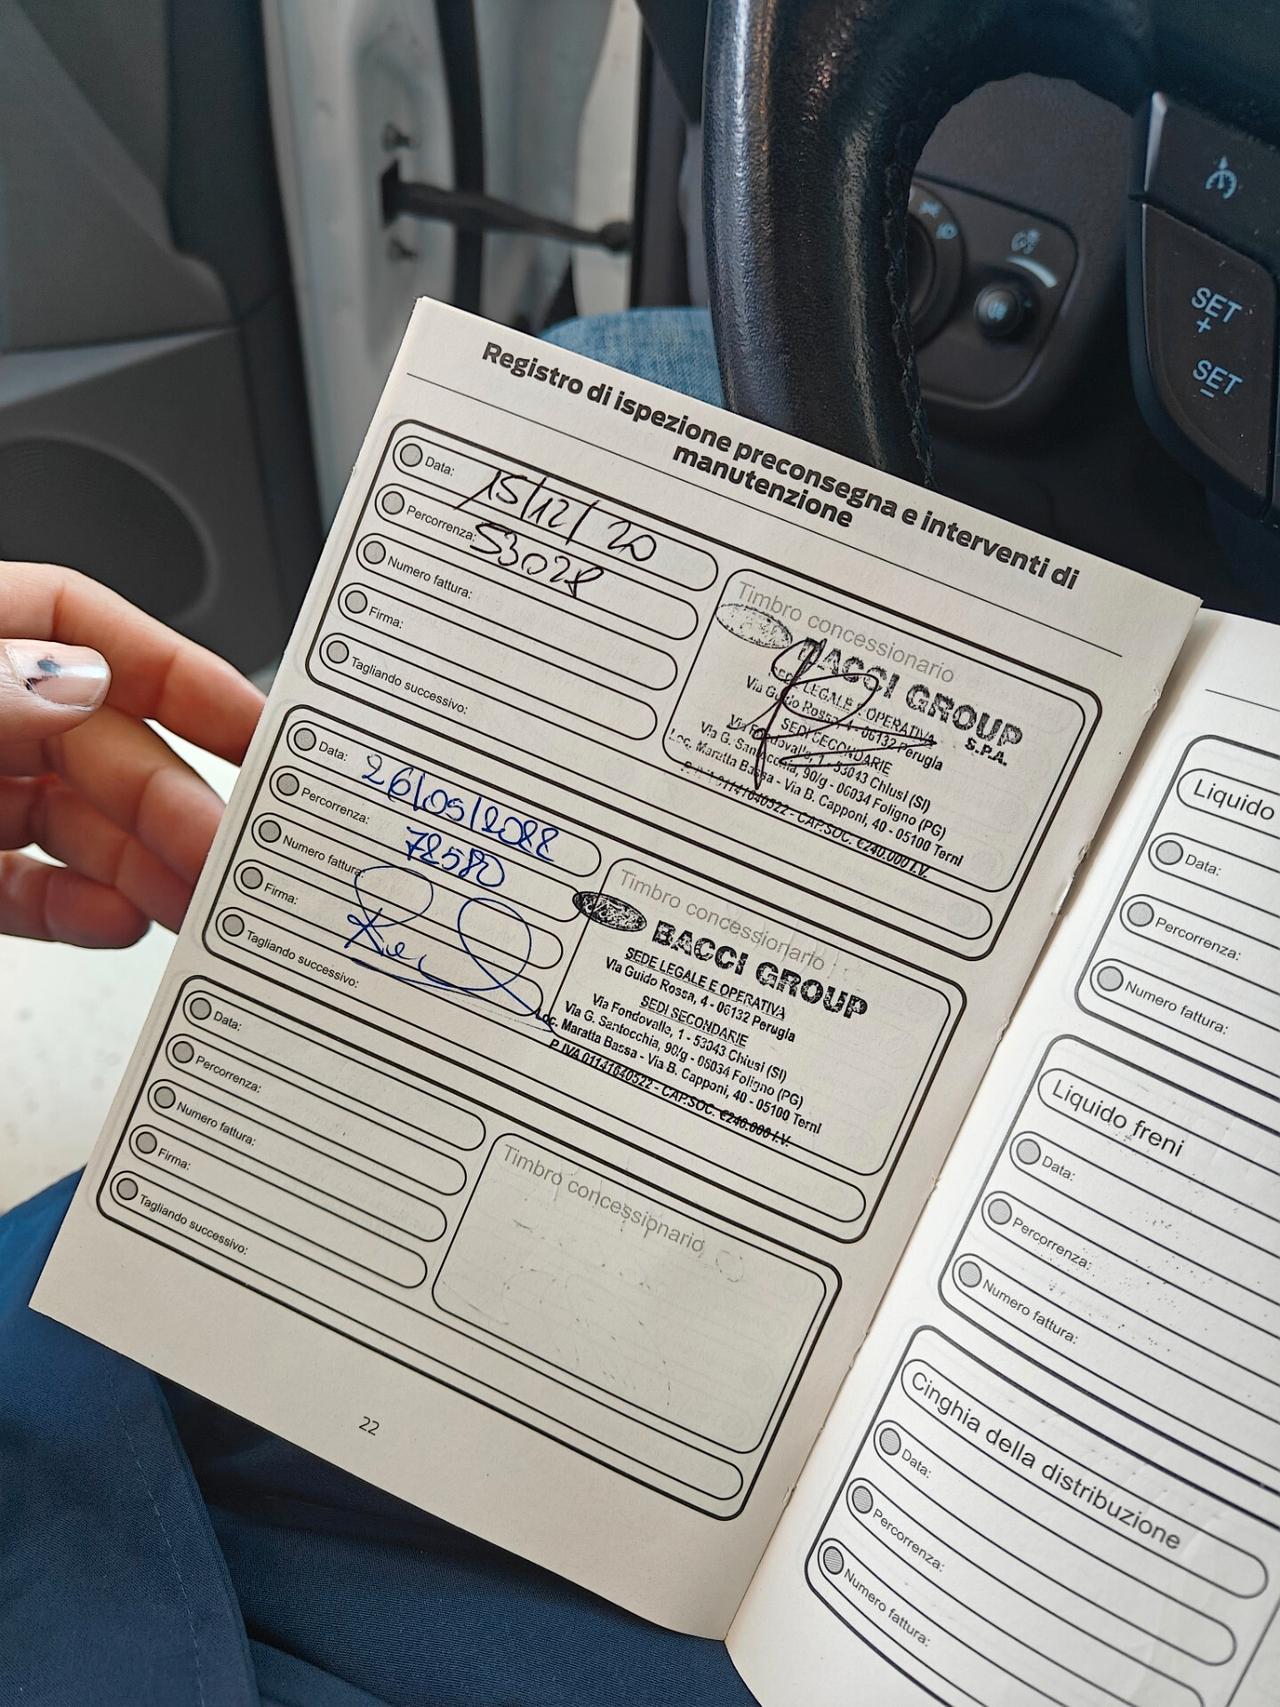 SET
+
SET
–
Registro di ispezione preconsegna e interventi di
manutenzione
Data: 15/12/20
Percorrenza: 53028
Numero fattura:
Firma:
Tagliando successivo:
Timbro concessionario
BACCI GROUP
S.P.A.
SEDE LEGALE E OPERATIVA
Via Guido Rossa, 4 - 06132 Perugia
SEDI SECONDARIE
Via Fondovalle, 1 - 53043 Chiusi (SI)
Via G. Santocchia, 90/g - 06034 Foligno (PG)
Loc. Maratta Bassa - Via B. Capponi, 40 - 05100 Terni
P. IVA 01141640522 - CAP.SOC. €240.000 I.V.
Data: 26/05/2022
Percorrenza: 72580
Numero fattura:
Firma:
Tagliando successivo:
Timbro concessionario
BACCI GROUP
SEDE LEGALE E OPERATIVA
Via Guido Rossa, 4 - 06132 Perugia
SEDI SECONDARIE
Via Fondovalle, 1 - 53043 Chiusi (SI)
Via G. Santocchia, 90/g - 06034 Foligno (PG)
Loc. Maratta Bassa - Via B. Capponi, 40 - 05100 Terni
P. IVA 01141640522 - CAP.SOC. €240.000 I.V.
Data:
Percorrenza:
Numero fattura:
Firma:
Tagliando successivo:
Timbro concessionario
22
Liquido
Data:
Percorrenza:
Numero fattura:
Liquido freni
Data:
Percorrenza:
Numero fattura:
Cinghia della distribuzione
Data:
Percorrenza:
Numero fattura: